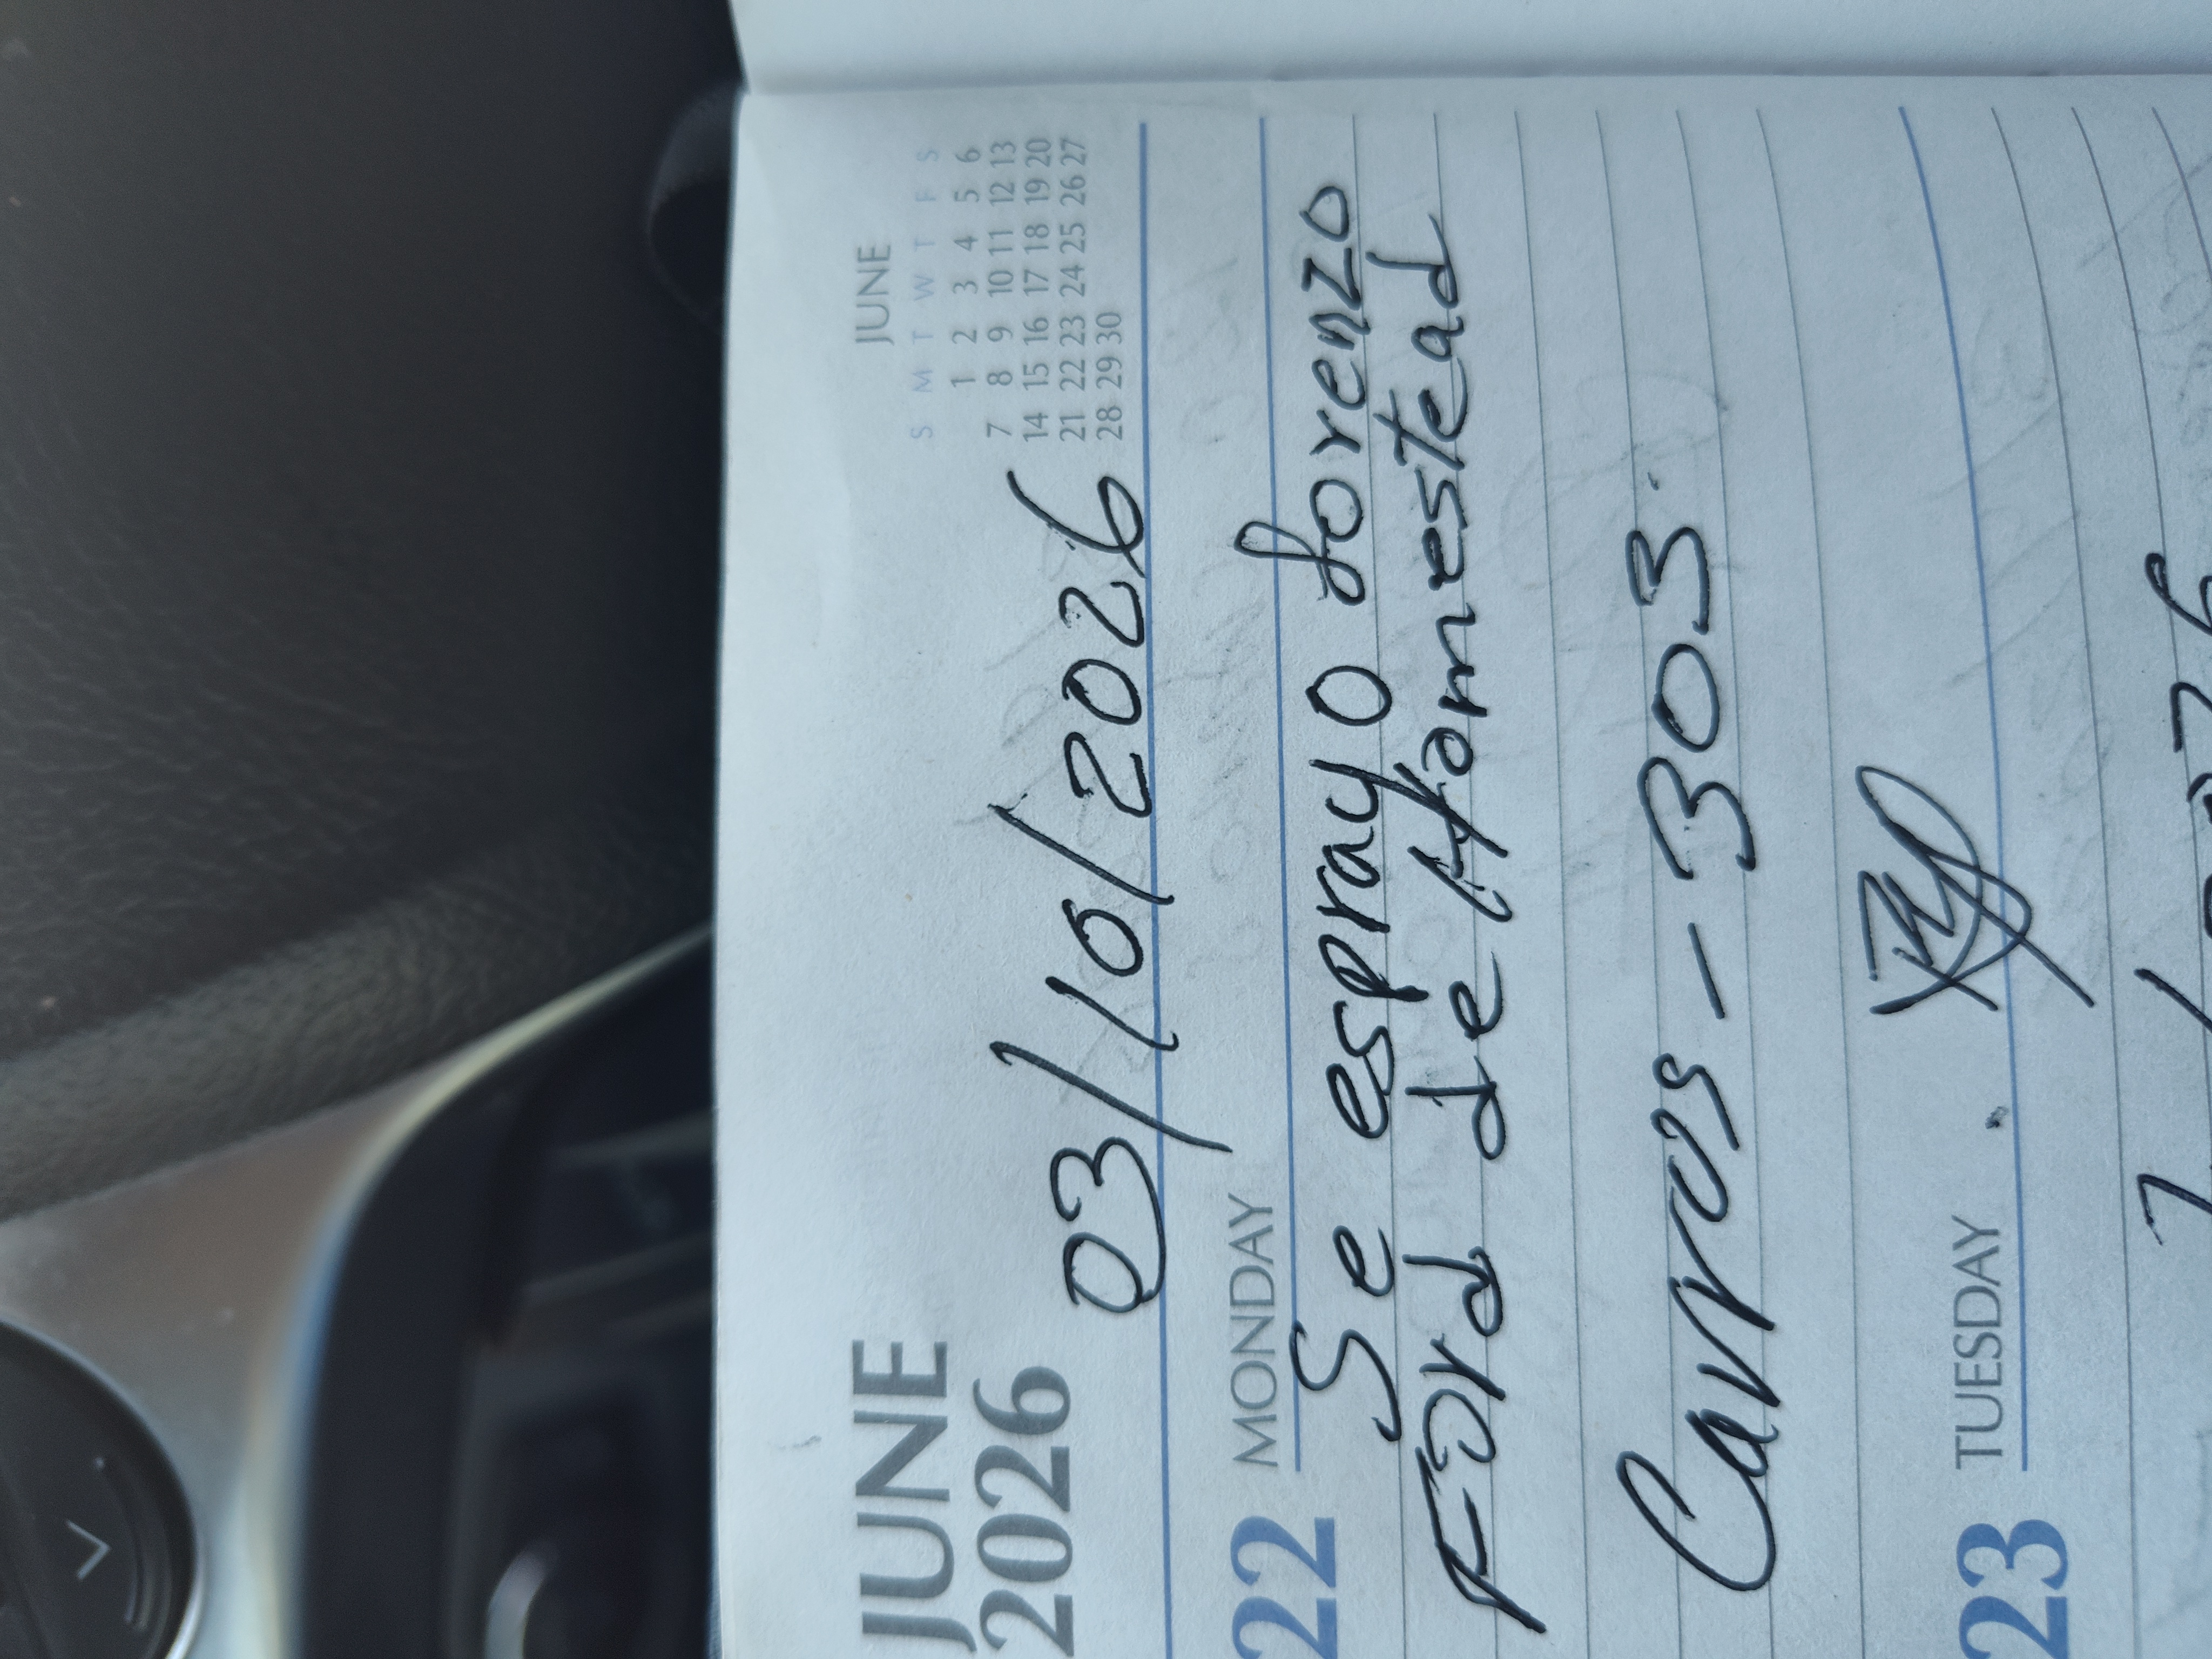 JUNE
2026
03/10/2026
JUNE
S M T W T F S
1 2 3 4 5 6
7 8 9 10 11 12 13
14 15 16 17 18 19 20
21 22 23 24 25 26 27
28 29 30
22 MONDAY
Se esprayo Lorenzo
Ford de Homestead
Carros - 303.
23 TUESDAY